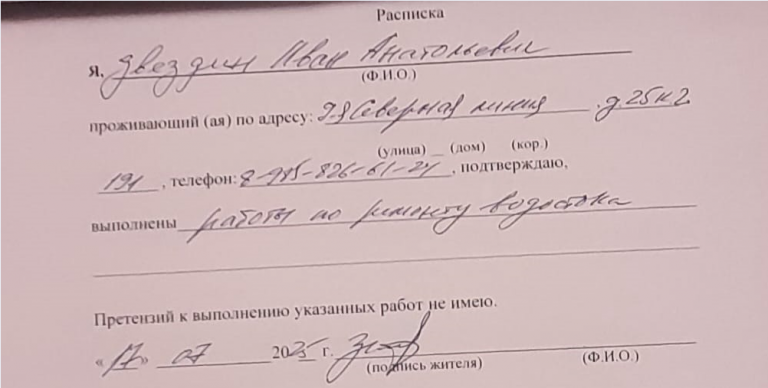 Расписка
Я, Звездин Иван Анатольевич
(Ф.И.О.)
проживающий (ая) по адресу: 9-я Северная линия д.25к2
(улица) (дом) (кор.)
191, телефон: 8-985-826-61-24, подтверждаю,
выполнены работы по ремонту водостока
Претензий к выполнению указанных работ не имею.
«17» 07 2025 г.
(подпись жителя) (Ф.И.О.)